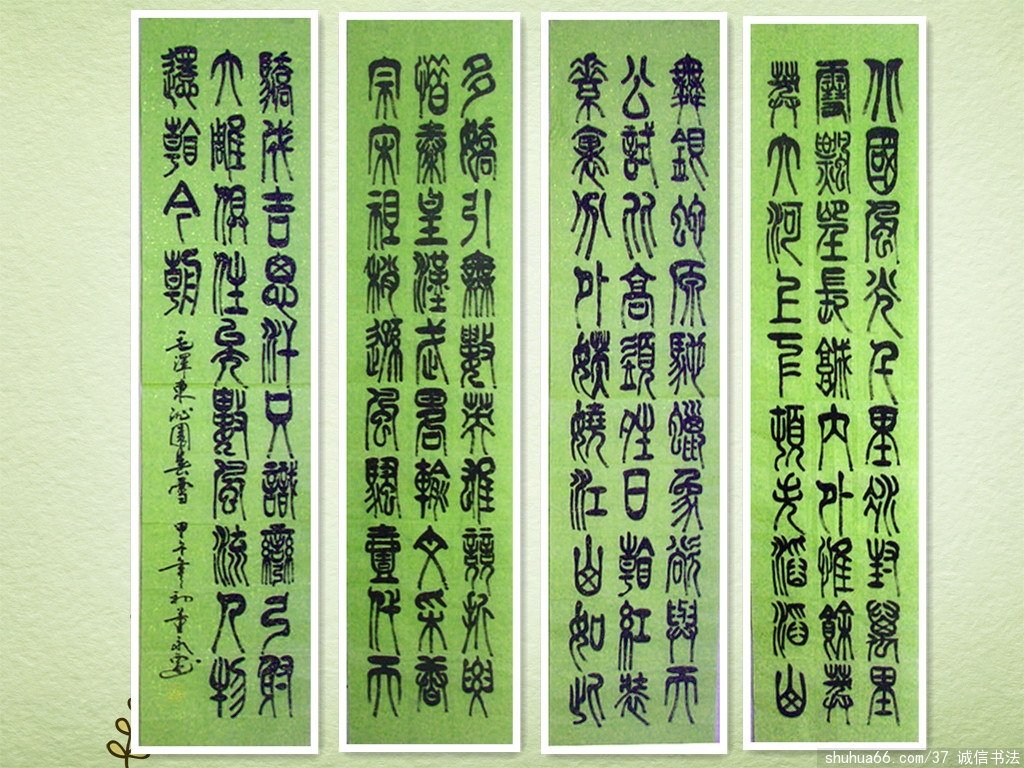 北國風光千里冰封萬里
雪飄望長城內外惟餘莽
莽大河上下頓失滔滔山
舞銀蛇原馳蠟象欲與天
公試比高須晴日看紅裝
素裹分外妖嬈江山如此
多嬌引無數英雄競折腰
惜秦皇漢武略輸文采唐
宗宋祖稍遜風騷壹代天
驕成吉思汗只識彎弓射
大雕俱往矣數風流人物
還看今朝
毛澤東沁園春雪 甲午年初
shuhua66.com/37 诚信书法